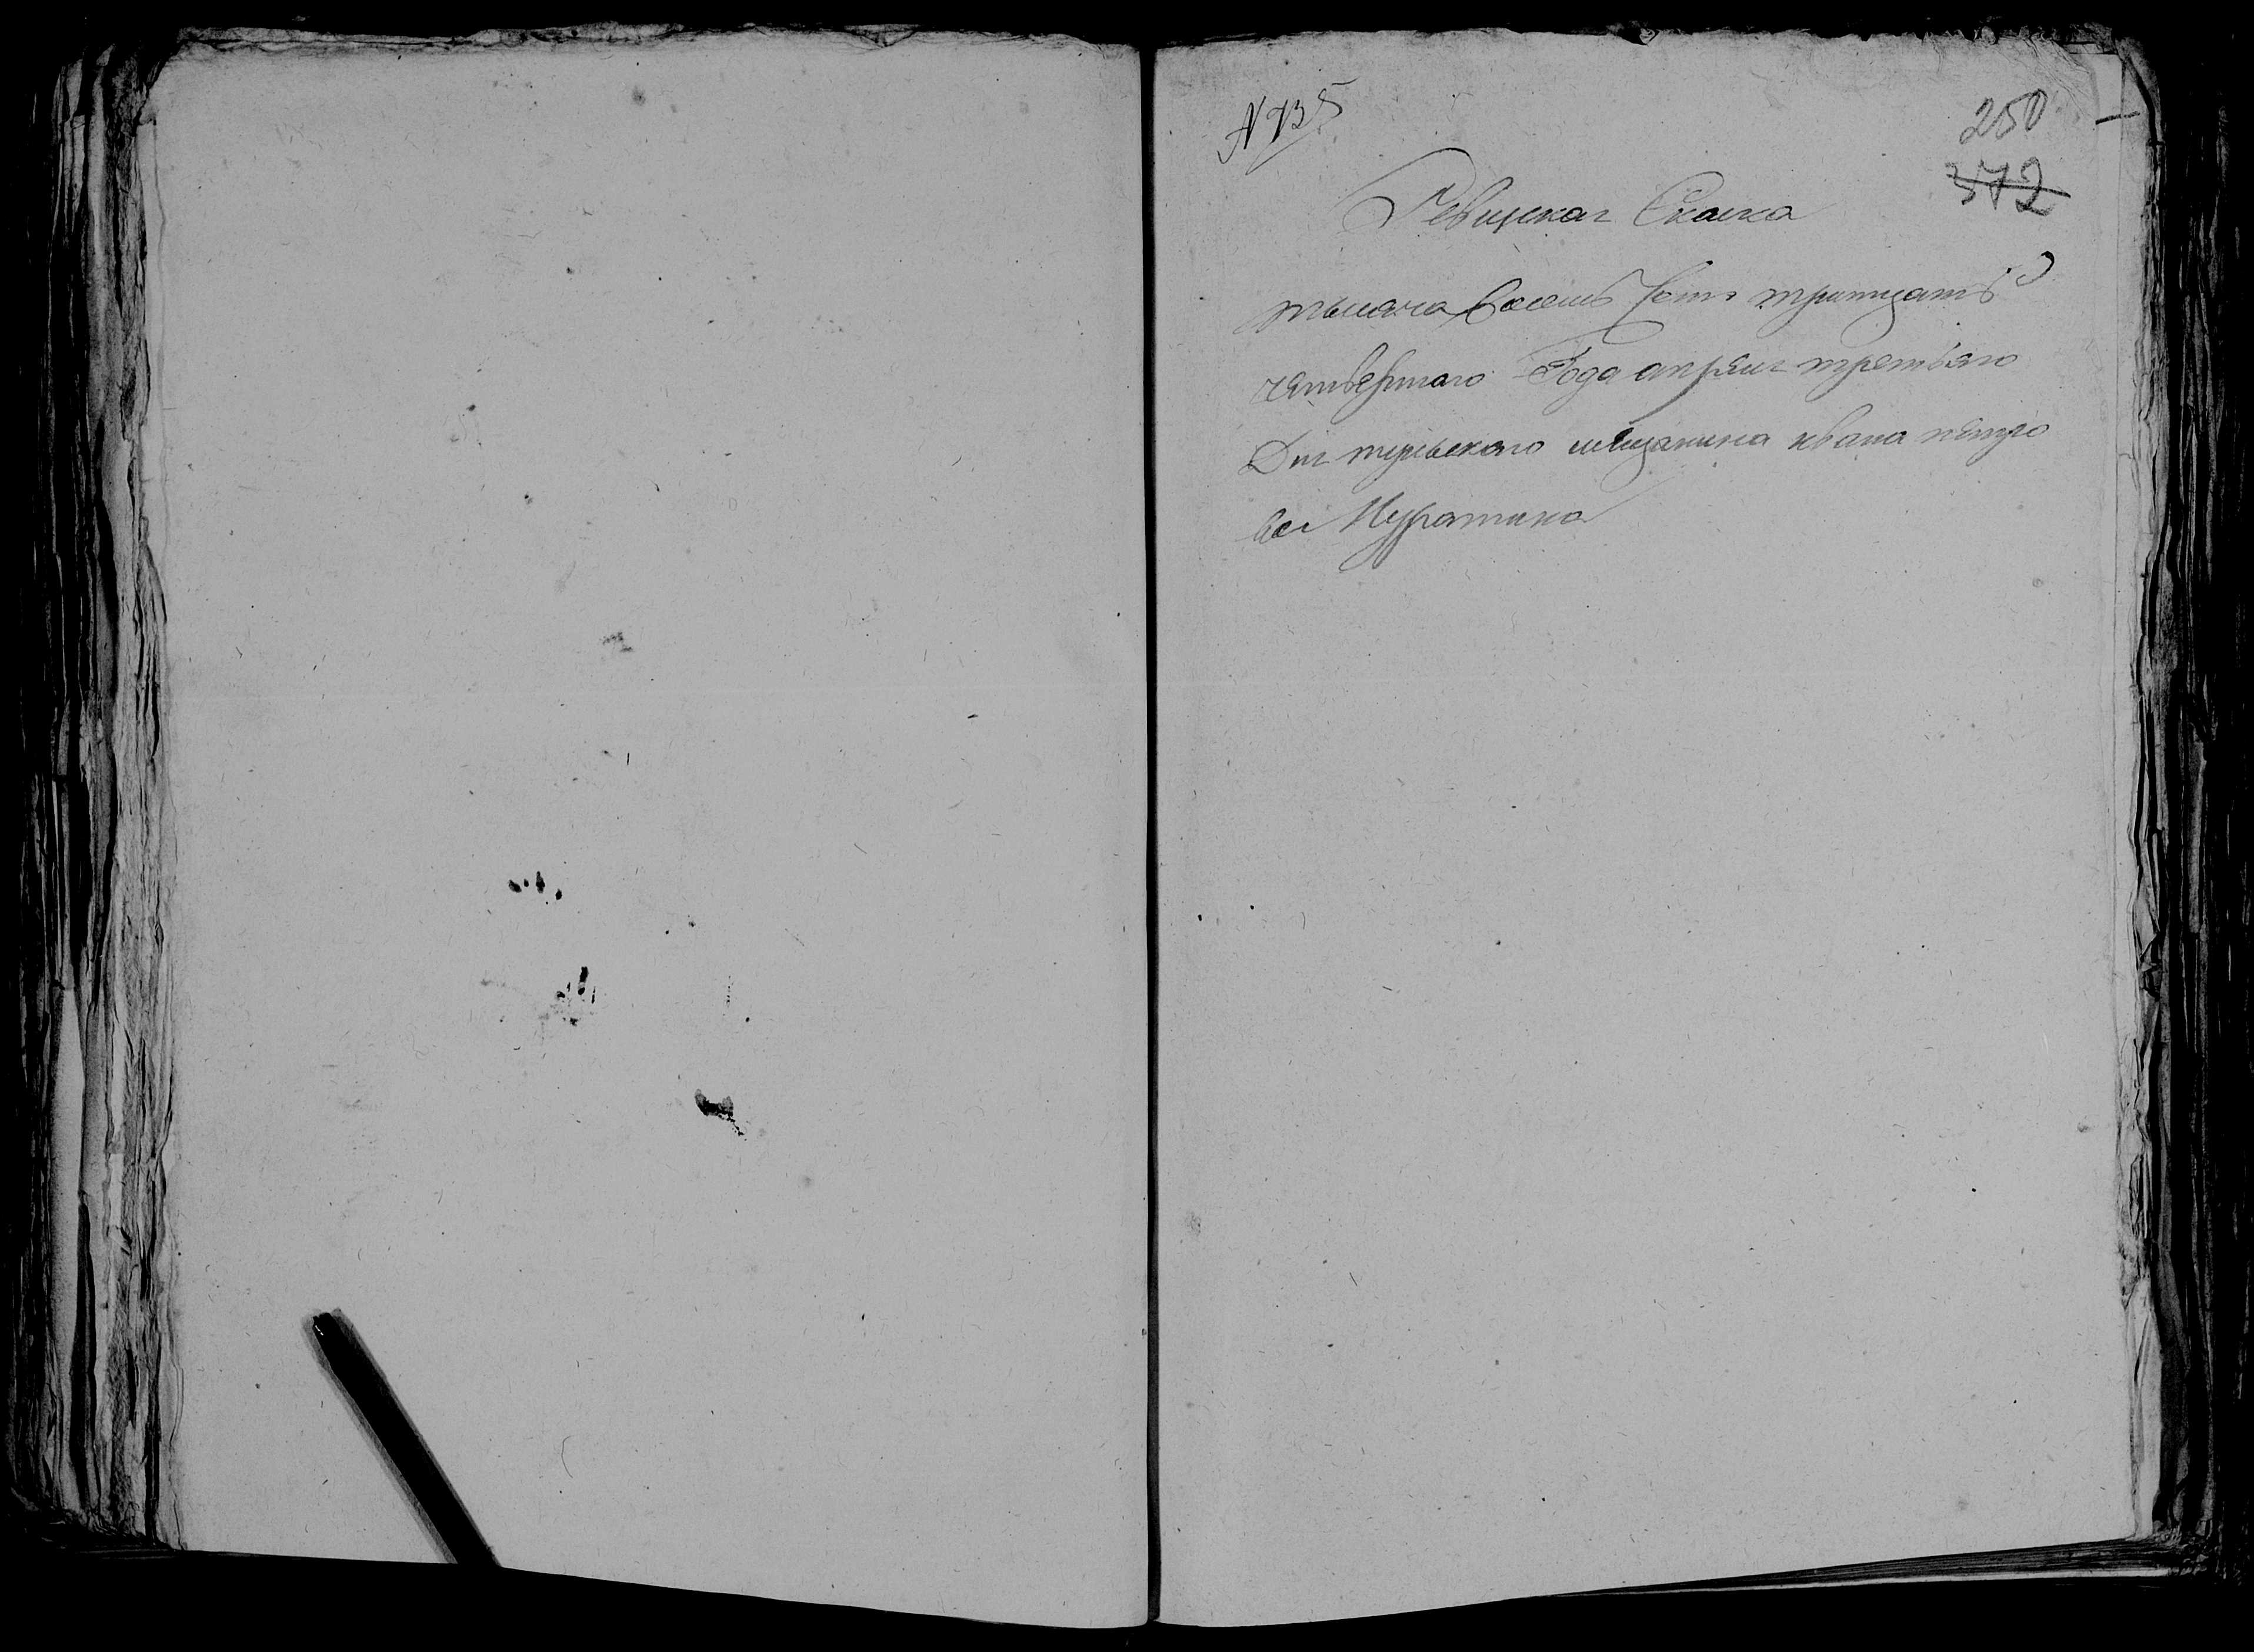 N 735
250
372
Ревизская Скаска
тысяча восемь сотъ тритцать
четвертаго Года апреля третьяго
Дня тульского мещанина ивана петро
ва Муратина